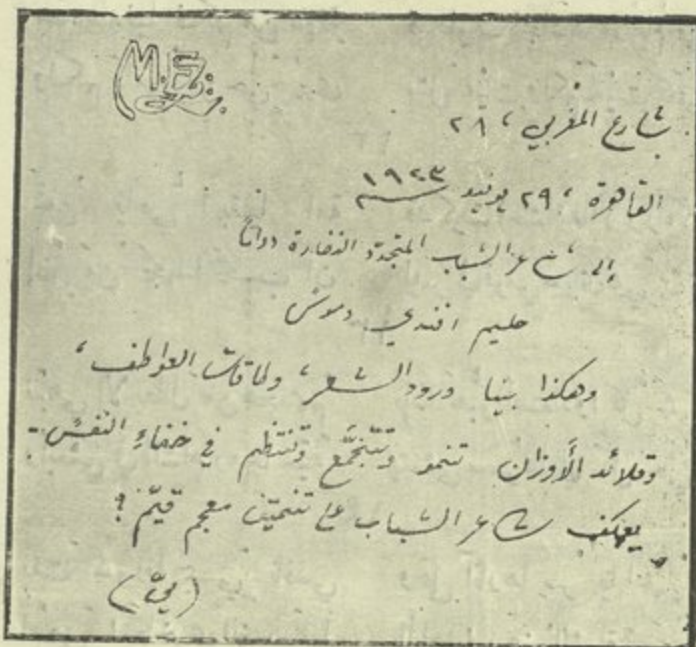 M.Z.
شارع المغربي، ٢٨
القاهرة، ٢٩ يونيو ١٩٢٣
إلى شاعر الشباب المتجدد النضارة دواماً
حليم افندي دموس
وهكذا بينا ورود الشعر، وطاقات العواطف،
وقلائد الأوزان تنمو وتتجمَّع وتنتظم في خفاءِ النفس -
يعكف شاعر الشباب على تنميق معجم قيّم؟
(ميّ)